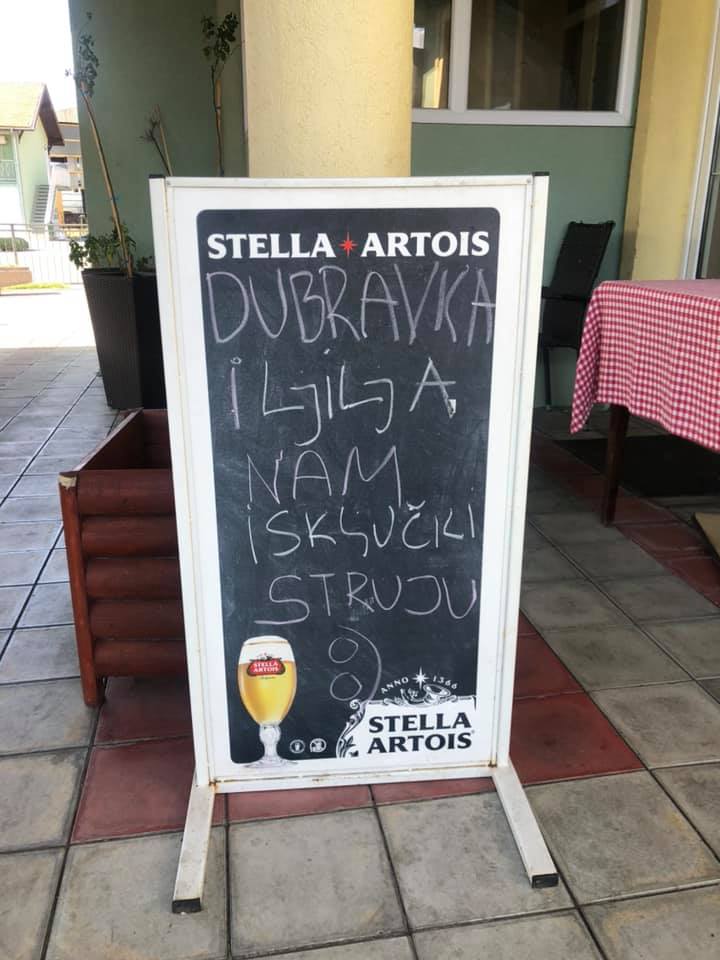 STELLA ARTOIS
DUBRAVKA
i LJILJA
NAM
ISKLJUČILI
STRUJU
:)
STELLA
ARTOIS
ANNO 1366
STELLA
ARTOIS